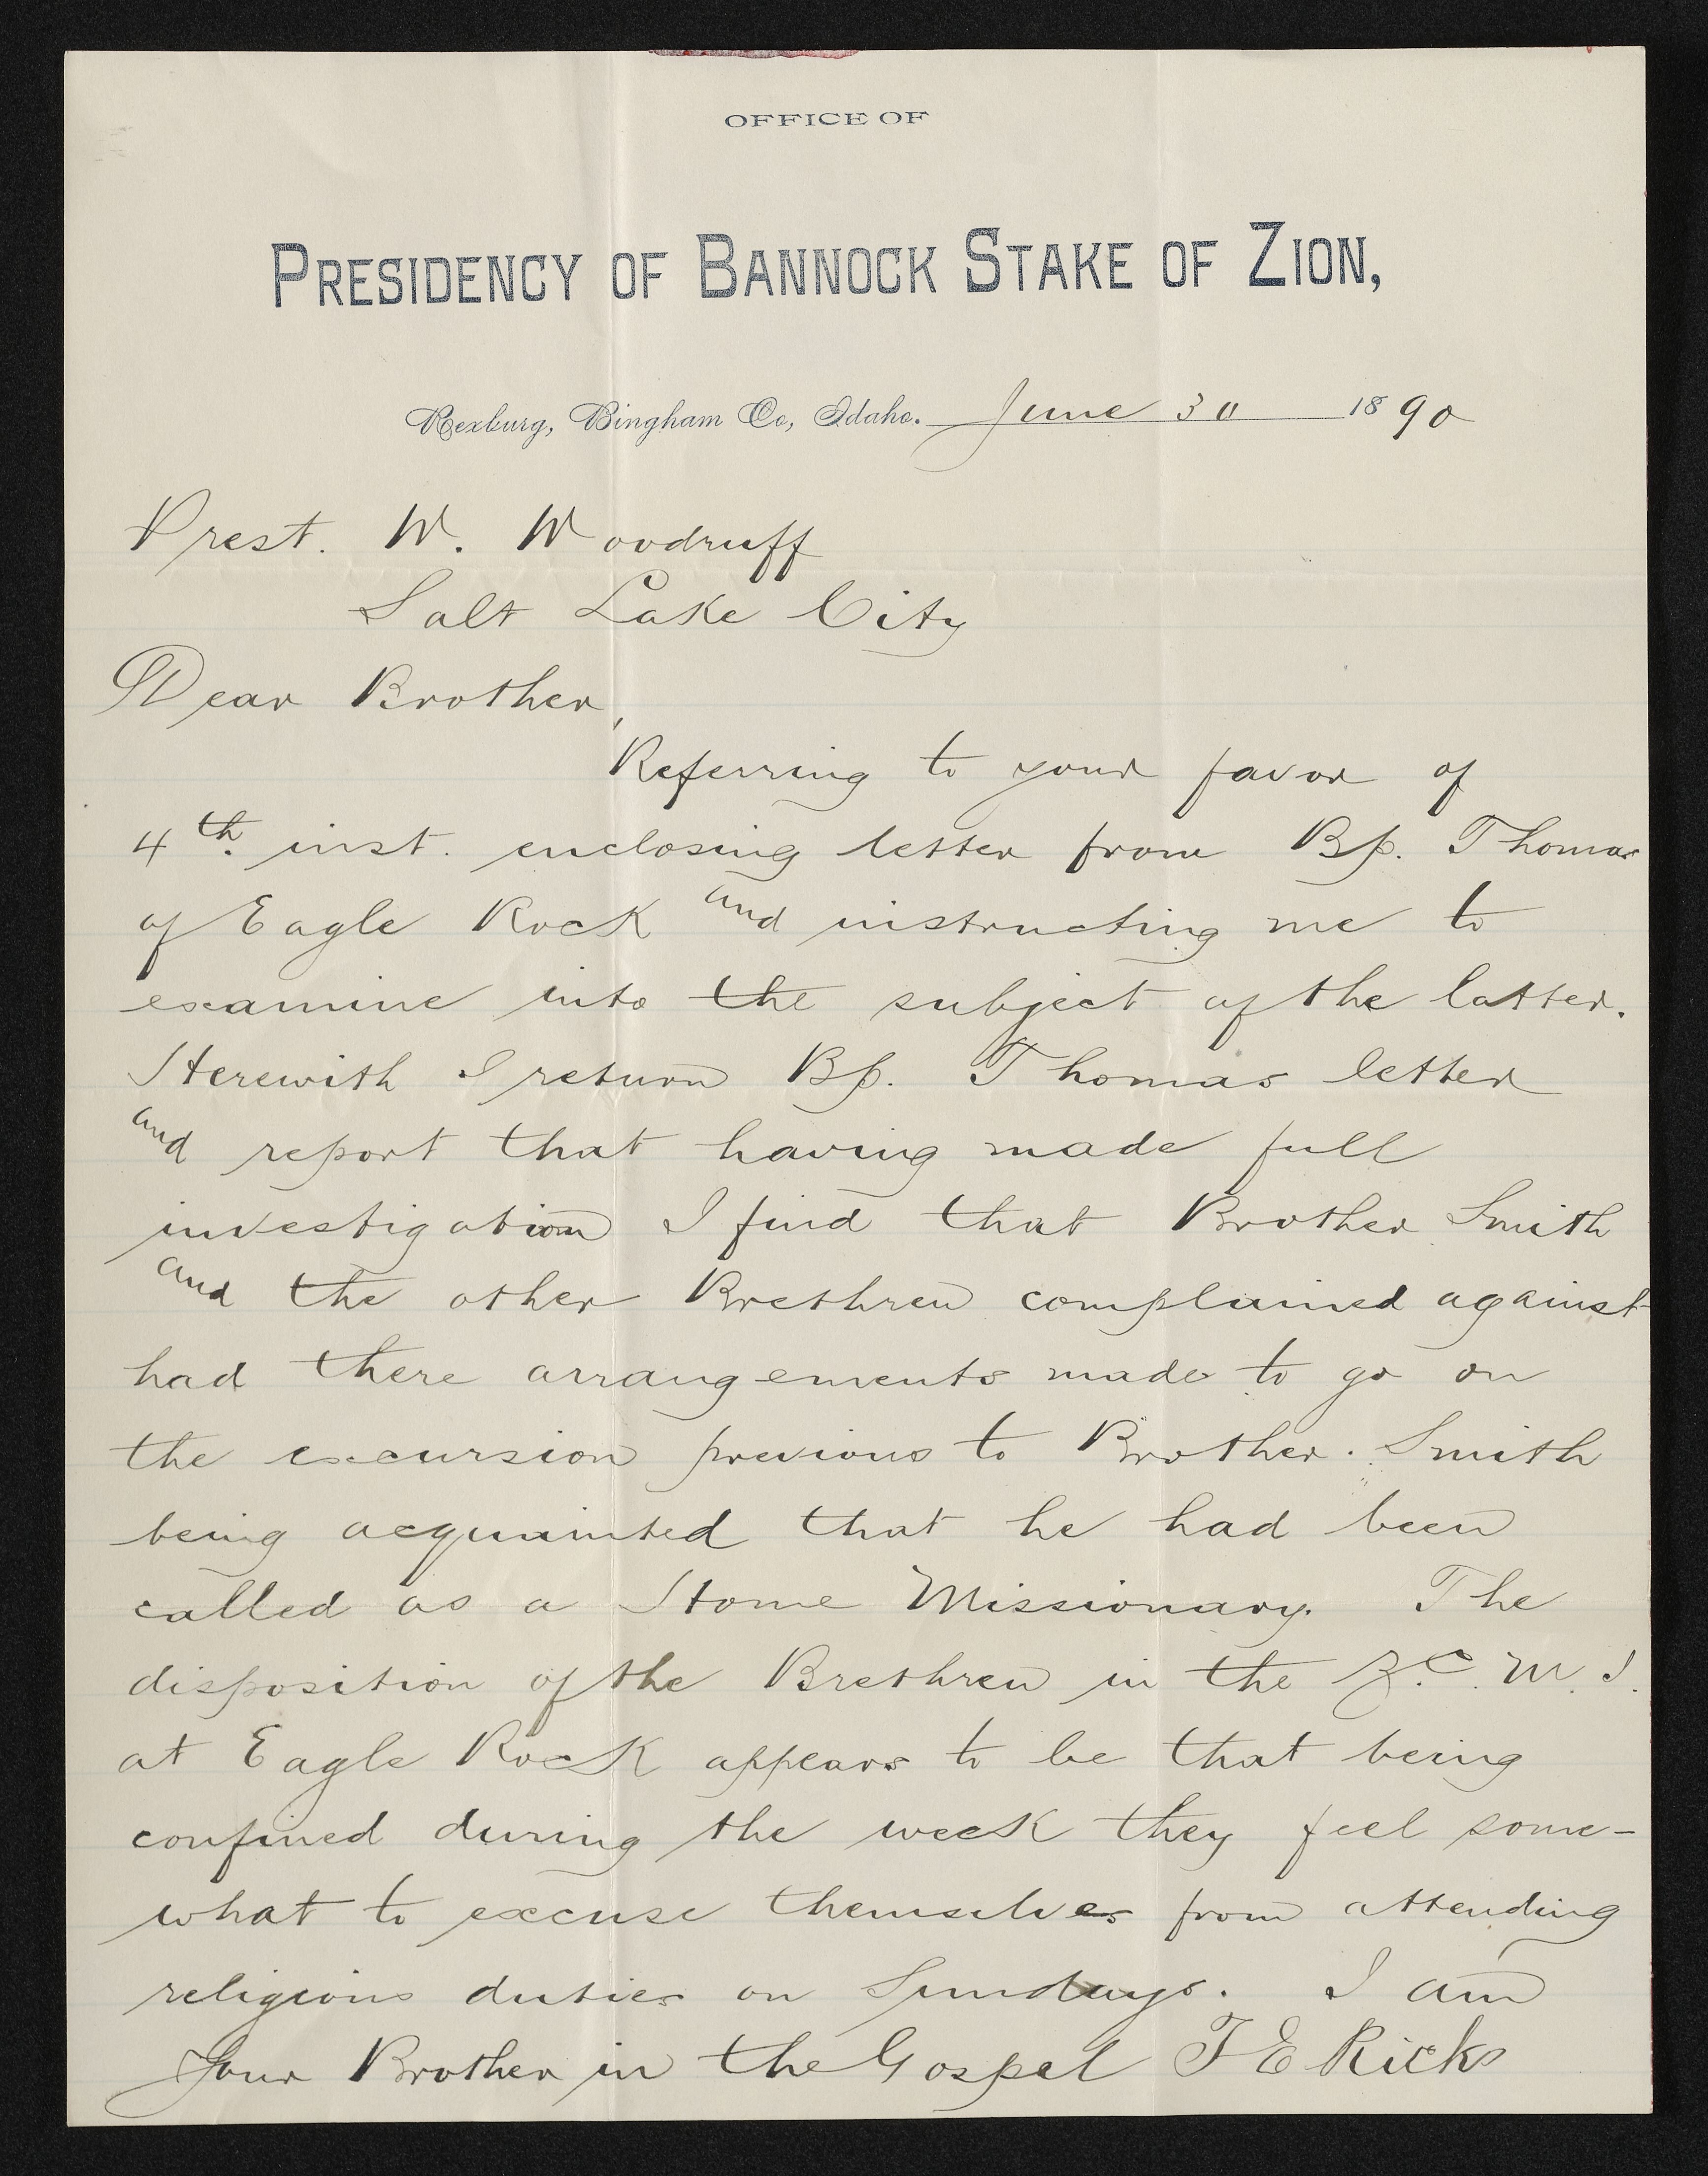 OFFICE OF
PRESIDENCY OF BANNOCK STAKE OF ZION,
Rexburg, Bingham Co, Idaho. June 30 1890
Prest. W. Woodruff
Salt Lake City
Dear Brother,
Referring to your favor of
4th. inst. enclosing letter from Bp. Thomas
of Eagle Rock and instructing me to
examine into the subject of the latter.
Herewith I return Bp. Thomas letter
and report that having made full
investigation I find that Brother Smith
and the other Brethren complained against
had there arrangements made to go on
the excursion previous to Brother. Smith
being acquainted that he had been
called as a Home Missionary. The
disposition of the Brethren in the Z.C.M.I.
at Eagle Rock appears to be that being
confined during the week they feel some-
what to excuse themselves from attending
religious duties on Sundays. I am
Your Brother in the Gospel T E Ricks